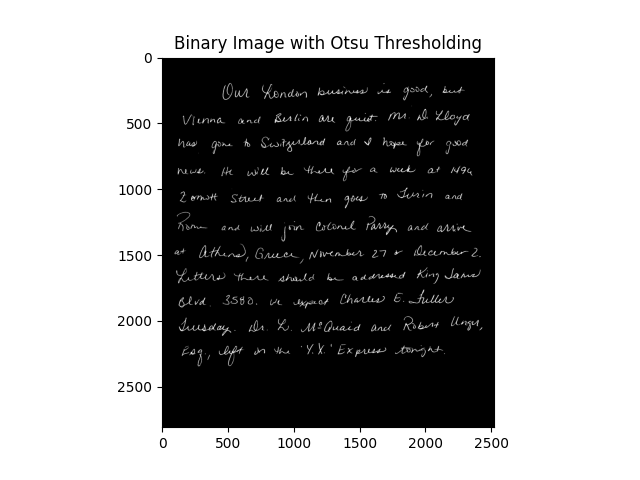 Binary Image with Otsu Thresholding
Our London business is good, but
Vienna and Berlin are quiet. Mr. D. Lloyd
has gone to Switzerland and I hope for good
news. He will be there for a week at 1496
Zermott Street and then goes to Turin and
Rome and will join Colonel Parry and arrive
at Athens, Greece, November 27 or December 2.
Letters there should be addressed King James
Blvd. 3580. We expect Charles E. Fuller
Tuesday. Dr. L. McQuaid and Robert Unger,
Esq., left on the 'Y.X.' Express tonight.
0
500
1000
1500
2000
2500
0 500 1000 1500 2000 2500